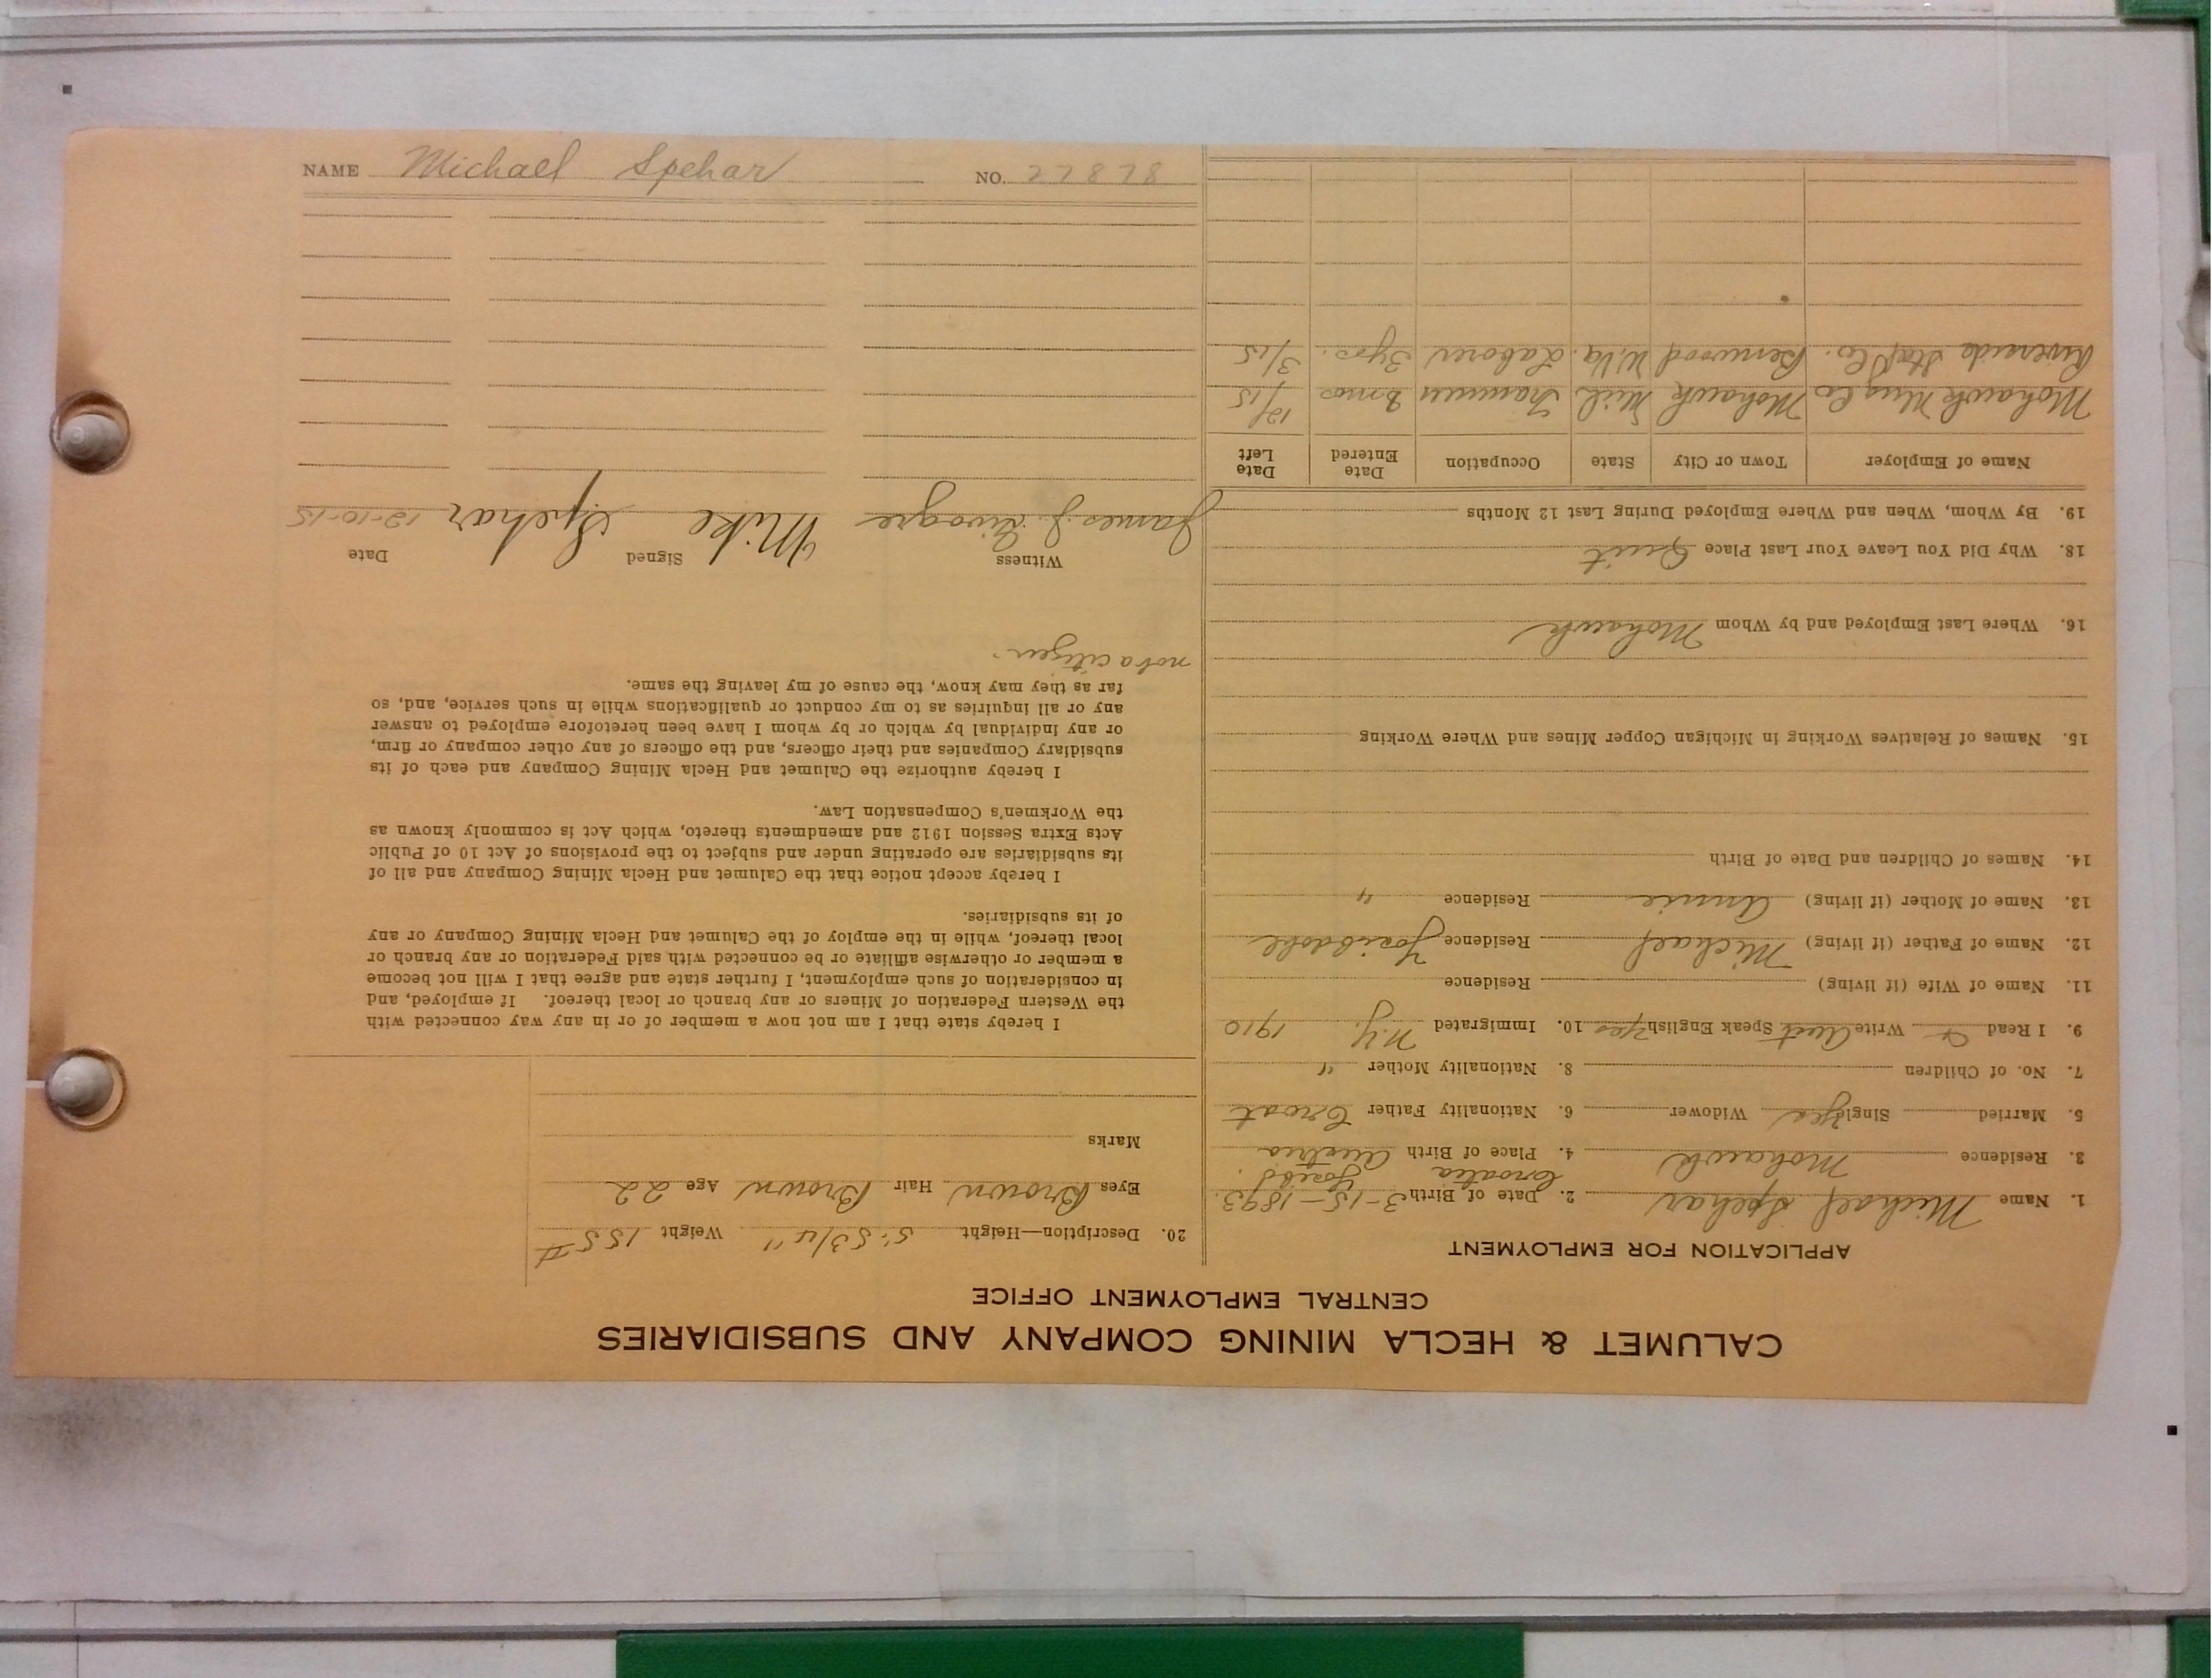 CALUMET & HECLA MINING COMPANY AND SUBSIDIARIES
CENTRAL EMPLOYMENT OFFICE
APPLICATION FOR EMPLOYMENT
1. Name Michael Spehar 2. Date of Birth 3-15-1893.
Croatia
3. Residence Mohawk 4. Place of Birth Austria
5. Married Single yes Widower 6. Nationality Father Croat
7. No. of Children 8. Nationality Mother "
9. I Read Write Speak English yes 10. Immigrated N.Y. 1910
11. Name of Wife (if living) Residence
12. Name of Father (if living) Michael Residence
13. Name of Mother (if living) Annie Residence "
14. Names of Children and Date of Birth
15. Names of Relatives Working in Michigan Copper Mines and Where Working
16. Where Last Employed and by Whom Mohawk
18. Why Did You Leave Your Last Place Quit
19. By Whom, When and Where Employed During Last 12 Months
Name of Employer Town or City State Occupation Date Entered Date Left
Mohawk Mng Co Mohawk Mich Trammer mos 12/15
Riverside Co. Benwood W.Va. Laborer 3 yrs. 3/15
20. Description—Height 5' 5 3/4" Weight 155 #
Eyes Brown Hair Brown Age 22
Marks
I hereby state that I am not now a member of or in any way connected with
the Western Federation of Miners or any branch or local thereof. If employed, and
in consideration of such employment, I further state and agree that I will not become
a member or otherwise affiliate or be connected with said Federation or any branch or
local thereof, while in the employ of the Calumet and Hecla Mining Company or any
of its subsidiaries.
I hereby accept notice that the Calumet and Hecla Mining Company and all of
its subsidiaries are operating under and subject to the provisions of Act 10 of Public
Acts Extra Session 1912 and amendments thereto, which Act is commonly known as
the Workmen's Compensation Law.
I hereby authorize the Calumet and Hecla Mining Company and each of its
subsidiary Companies and their officers, and the officers of any other company or firm,
or any individual by which or by whom I have been heretofore employed to answer
any or all inquiries as to my conduct or qualifications while in such service, and, so
far as they may know, the cause of my leaving the same.
not a citizen.
Witness Signed Date
James J. Mike Spehar 12-10-15
NAME Michael Spehar NO. 27878